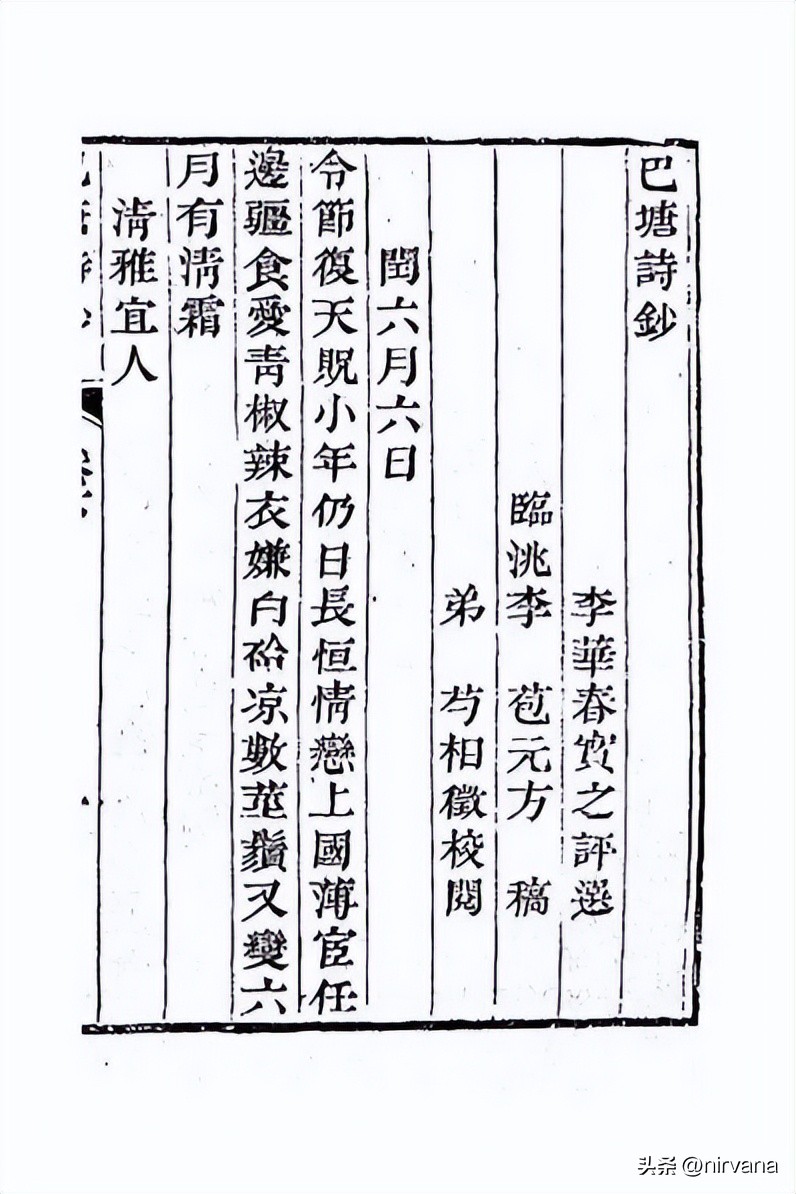 巴塘詩鈔
李華春實之評選
臨洮李 苞元方 稿
弟 芍相徵校閱
閏六月六日
令節復天貺小年仍日長恒情戀上國薄宦任
邊疆食愛青椒辣衣嫌白袷凉數莖鬚又變六
月有清霜
清雅宜人
巴塘詩鈔
头条 @nirvana